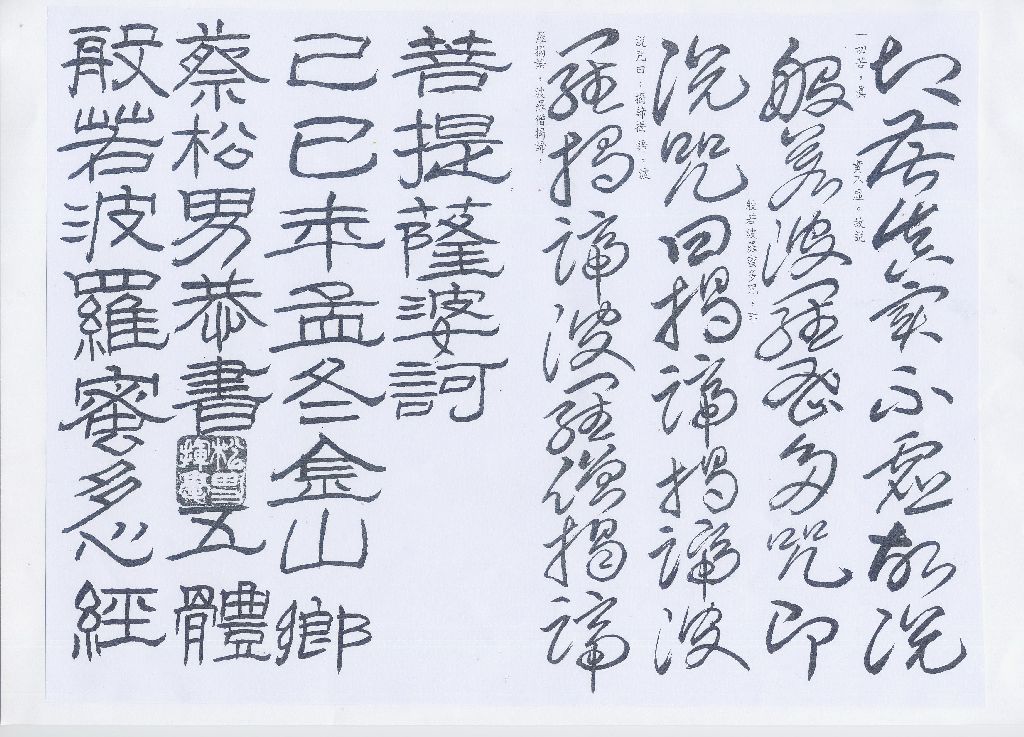 切苦真實不虛故說
一切苦，真
實不虛。故說
般若波羅蜜多咒即
般若波羅蜜多咒，即
說咒曰揭諦揭諦波
說咒曰：揭諦揭諦，波
羅揭諦波羅僧揭諦
羅揭諦，波羅僧揭諦，
菩提薩婆訶
己巳年孟冬金山鄉
蔡松男恭書五體
松男揮毫
般若波羅蜜多心經